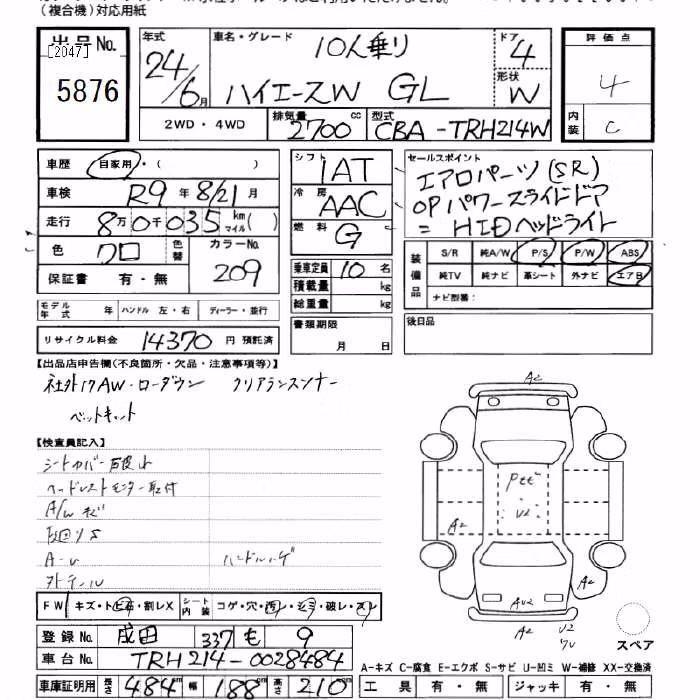 (複合機)対応用紙
出品No.
[2047]
5876
年式 24/6月
車名・グレード 10人乗り
ハイエースW GL
ドア 4
形状 W
評価点 4
内装 C
2WD・4WD
排気量 2700 cc
型式 CBA-TRH214W
車歴 自家用・( )
車検 R9年 8/21月
走行 8万0千035 km マイル( )
色 クロ 色替 カラーNo. 209
保証書 有・無
モデル年式 年 ハンドル 左・右 ディーラー・並行
リサイクル料金 14370 円 預託済
シフト IAT
冷房 AAC
燃料 G
乗車定員 10 名
積載量 kg
総重量 kg
書類期限 月 日
セールスポイント
エアロパーツ(SR)
OPパワースライドドア
= HIDヘッドライト
装備品
S/R 純A/W P/S P/W ABS
純TV 純ナビ 革シート 外ナビ エアB
ナビ型番:
後日品
【出品店申告欄(不良箇所・欠品・注意事項等)】
社外17AW・ローダウン クリアランスソナー
ベットキット
【検査員記入】
シートカバー
ヘッドレストモニター取付
A/W キズ
ハンドルハゲ
A2
A2
A2
U2
AU2
A2
U2
スペア
FW キズ・トビ石・割レX シート内装 コゲ・穴・汚レ・シミ・破レ・スレ
登録No. 成田 337 も 9
車台No. TRH214-0028484
車庫証明用 長さ 484cm 幅 188cm 高さ 210cm
A-キズ C-腐食 E-エクボ S-サビ U-凹ミ W-補修 XX-交換済
工具 有・無 ジャッキ 有・無